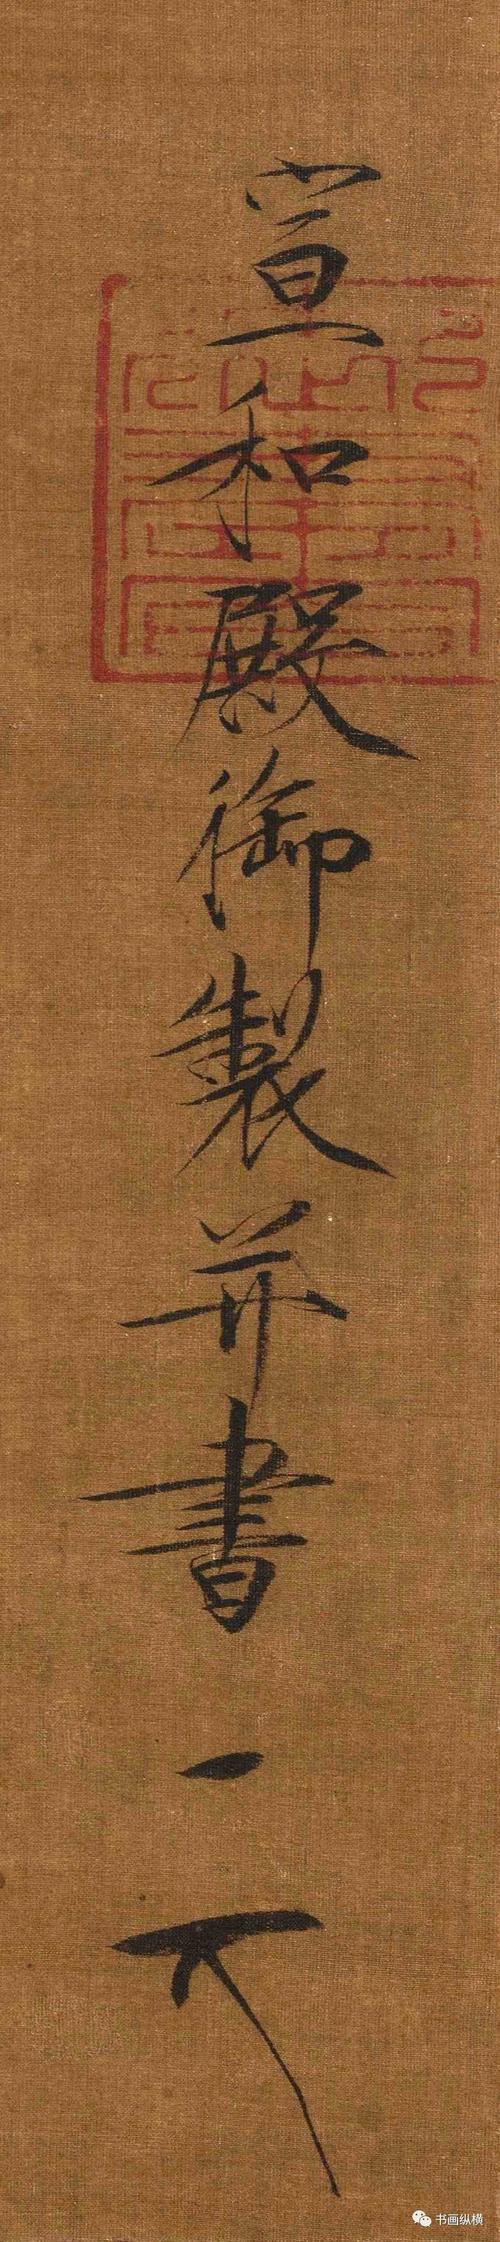 宣和殿御製并書
书画纵横